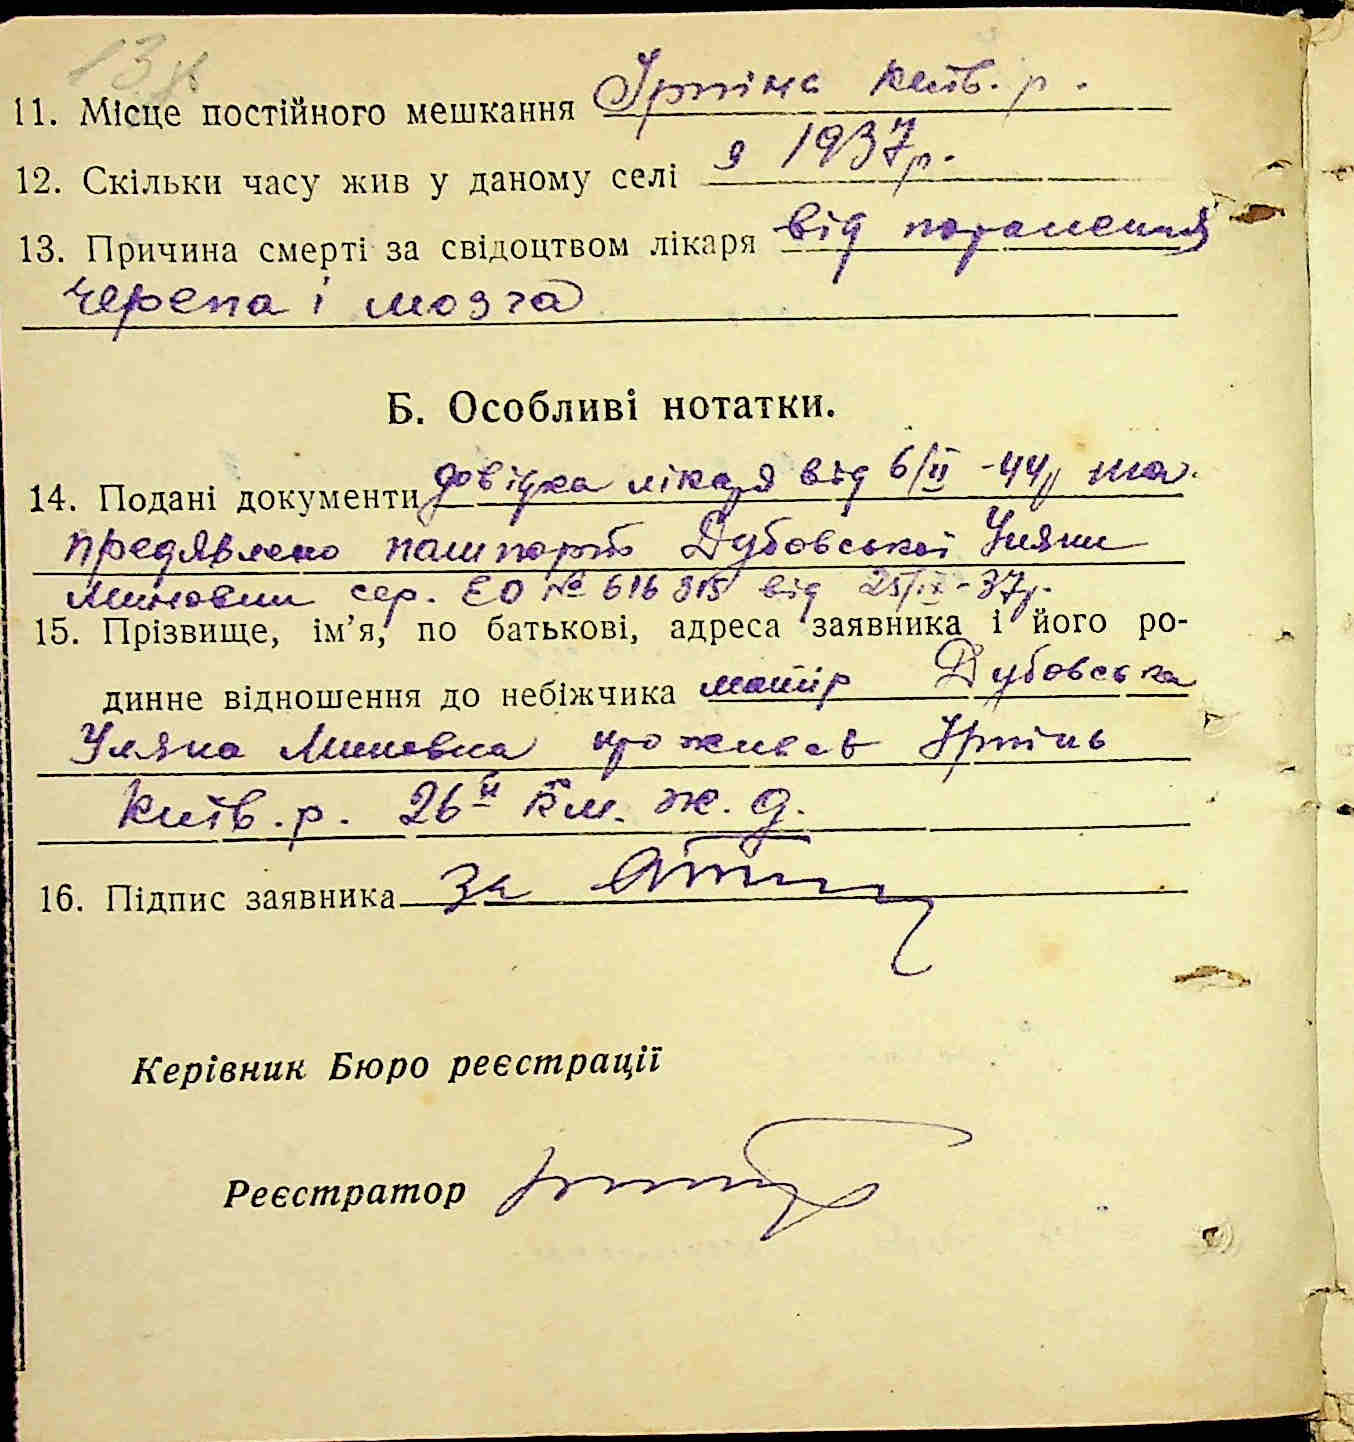 11. Місце постійного мешкання Ірпінь Київ. р.
12. Скільки часу жив у даному селі з 1937р.
13. Причина смерті за свідоцтвом лікаря від поранення
черепа і мозга
Б. Особливі нотатки.
14. Подані документи довідка лікаря від 6/II -44р та
предявлено пашпорт Дубовської Уляни
Миновни сер. ЕО № 616315 від 25/IX-37р.
15. Прізвище, ім’я, по батькові, адреса заявника і його ро-
динне відношення до небіжчика матір Дубовська
Уляна Миновна проживає Ірпінь
Київ. р. 26й км. ж. д.
16. Підпис заявника За
Керівник Бюро реєстрації
Реєстратор